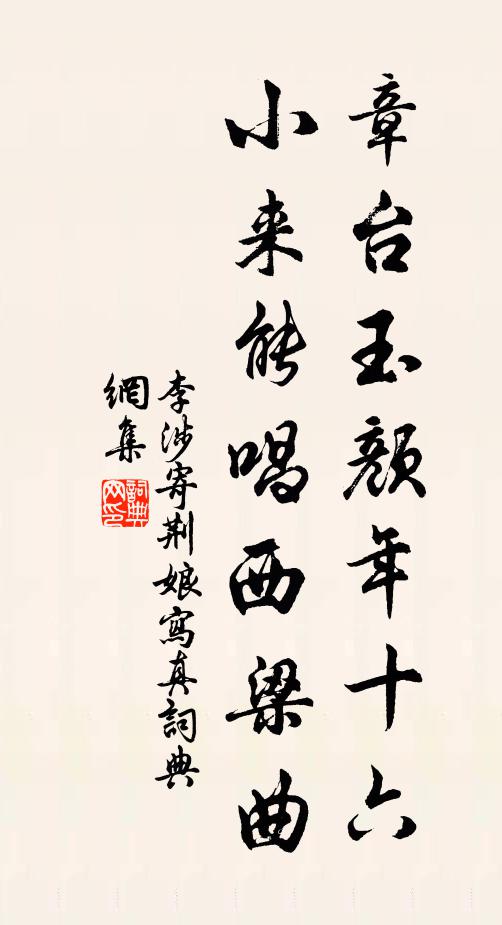 章台玉顔年十六
小来能唱西梁曲
李涉寄荆娘寫真詞典
網集
詞典
网印